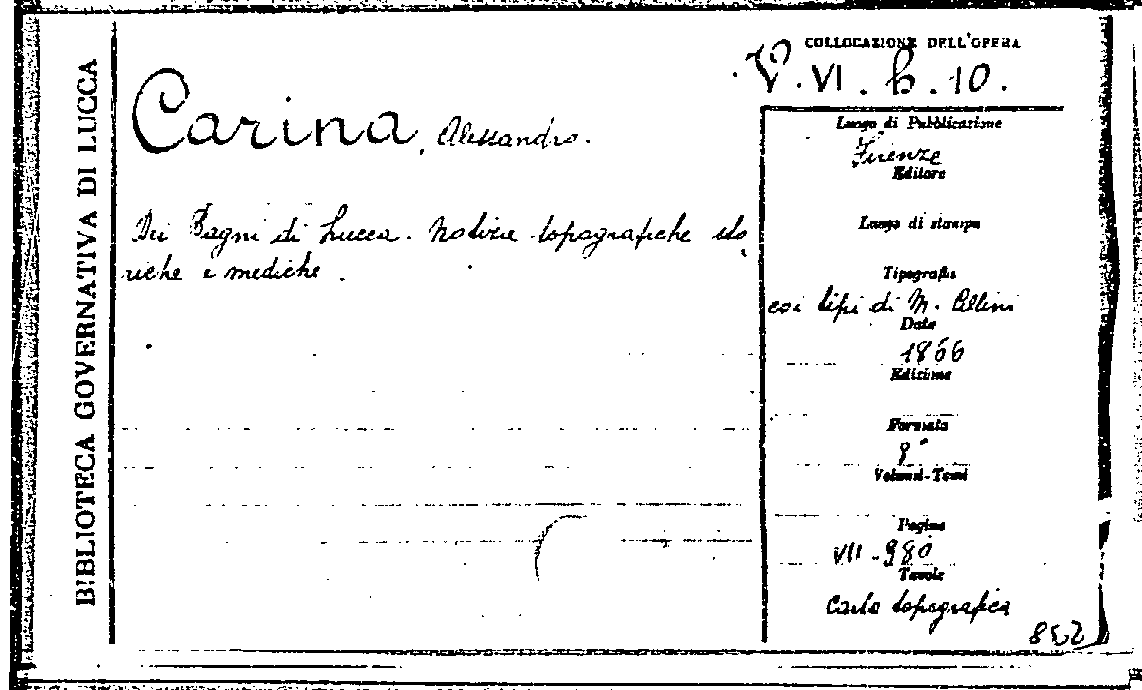 BIBLIOTECA GOVERNATIVA DI LUCCA
Carina, Alessandro.
Dei Bagni di Lucca. Notizie topografiche sto
riche e mediche.
COLLOCAZIONE DELL'OPERA
V. VI. b. 10.
Luogo di Pubblicazione
Firenze
Editore
Luogo di stampa
Tipografia
coi tipi di M. Cellini
Data
1866
Edizione
Formato
8°
Volumi-Tomi
Pagine
VII-980
Tavole
Carta topografica